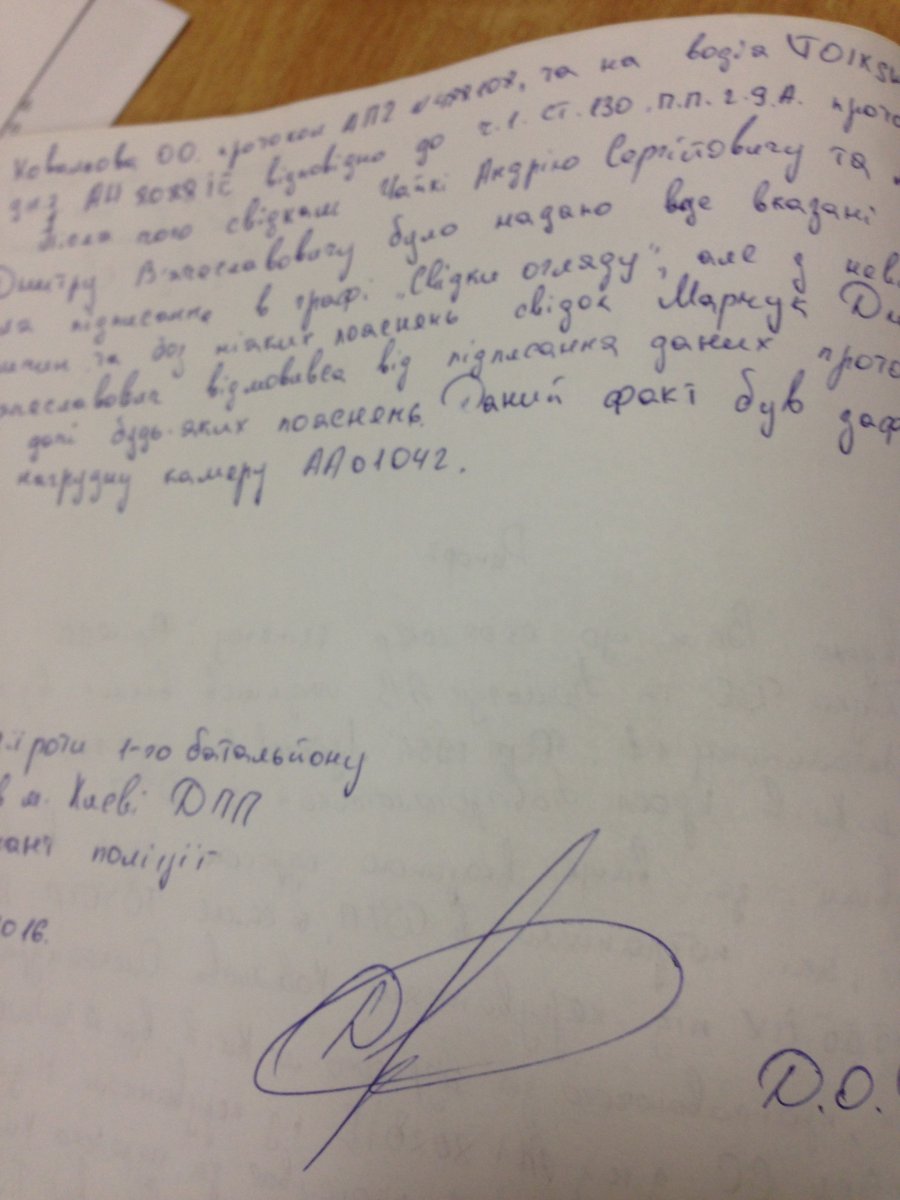 Ковальова О.О. протокол АП2 №478808, та на водія VOLKSW
днз АН8088ІС відповідно до ч.1.ст.130.П.П.2.9.А. прото
Після чого свідкам Чайкі Андрію Сергійовичу та
Дмитру В'ячеславовичу було надано вще вказані
ля підписання в графі „Свідки огляду", але з нев
ичин та без ніяких пояснень свідок Марчук Дм
ячеславович відмовився від підписання даних прото
дачі будь-яких пояснень. Даний факт був заф
нагрудну камеру АА01042.
роти 1-го батальйону
в м. Києві ДПП
ант поліції
016.
Д.О.